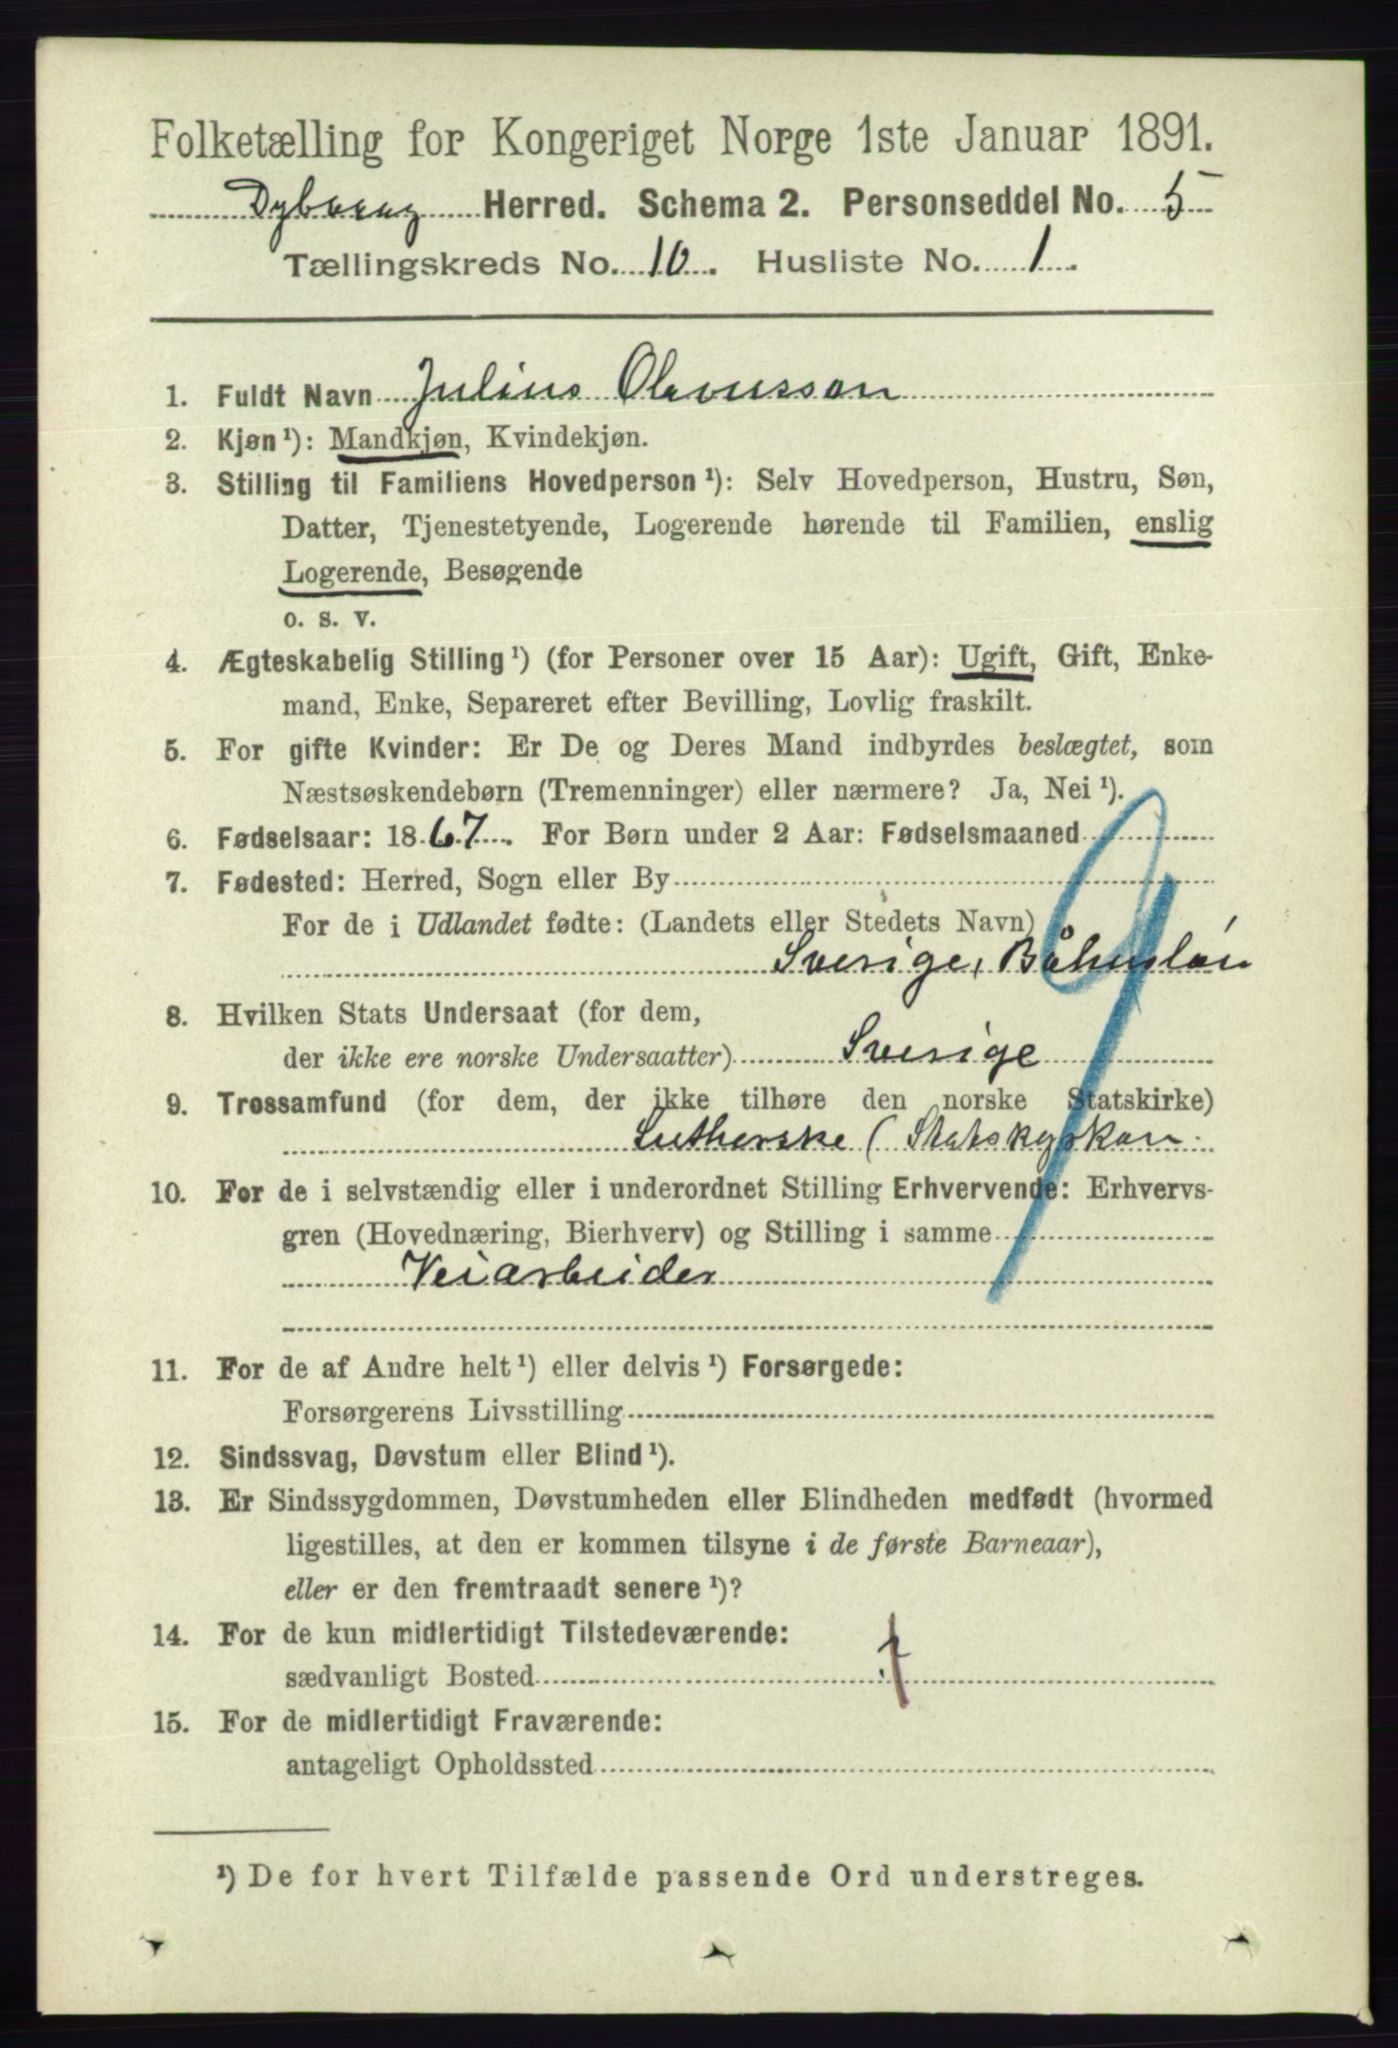 Folketælling for Kongeriget Norge 1ste Januar 1891.
Dybvaag Herred. Schema 2. Personseddel No. 5
Tællingskreds No. 10. Husliste No. 1.
1. Fuldt Navn Julius Olavusson
2. Kjøn¹): Mandkjøn, Kvindekjøn.
3. Stilling til Familiens Hovedperson¹): Selv Hovedperson, Hustru, Søn,
Datter, Tjenestetyende, Logerende hørende til Familien, enslig
Logerende, Besøgende
o. s. v.
4. Ægteskabelig Stilling¹) (for Personer over 15 Aar): Ugift, Gift, Enke-
mand, Enke, Separeret efter Bevilling, Lovlig fraskilt.
5. For gifte Kvinder: Er De og Deres Mand indbyrdes beslægtet, som
Næstsøskendebørn (Tremenninger) eller nærmere? Ja, Nei¹).
6. Fødselsaar: 1867. For Børn under 2 Aar: Fødselsmaaned
7. Fødested: Herred, Sogn eller By
For de i Udlandet fødte: (Landets eller Stedets Navn)
Sverige, Båhuslän
8. Hvilken Stats Undersaat (for dem,
der ikke ere norske Undersaatter) Sverige
9. Trossamfund (for dem, der ikke tilhøre den norske Statskirke)
Lutherske (Statskyrkan.
10. For de i selvstændig eller i underordnet Stilling Erhvervende: Erhvervs-
gren (Hovednæring, Bierhverv) og Stilling i samme
Veiarbeider
11. For de af Andre helt¹) eller delvis¹) Forsørgede:
Forsørgerens Livsstilling
12. Sindssvag, Døvstum eller Blind¹).
13. Er Sindssygdommen, Døvstumheden eller Blindheden medfødt (hvormed
ligestilles, at den er kommen tilsyne i de første Barneaar),
eller er den fremtraadt senere¹)?
14. For de kun midlertidigt Tilstedeværende:
sædvanligt Bosted
15. For de midlertidigt Fraværende:
antageligt Opholdssted
¹) De for hvert Tilfælde passende Ord understreges.